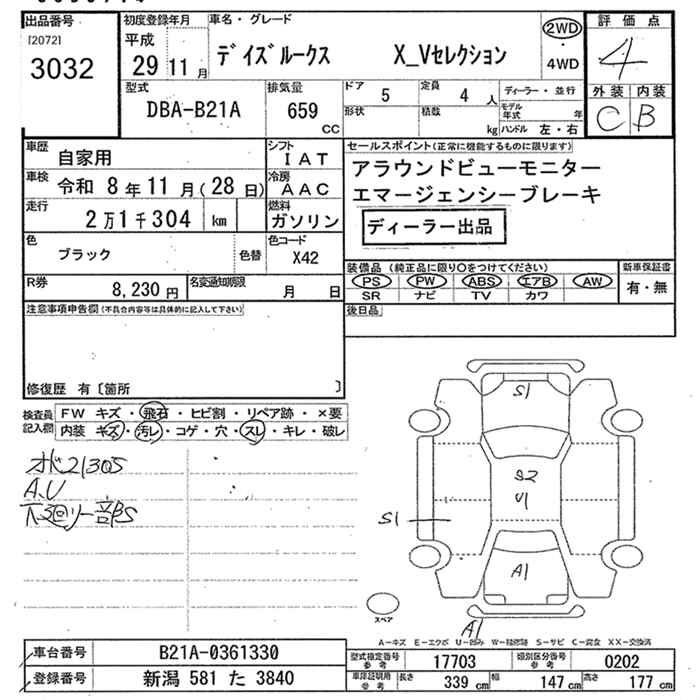 出品番号
[2072]
3032
初度登録年月
平成
29 11 月
車名・グレード
デイズルークス X_Vセレクション
2WD
・
4WD
評価点
4
外装 内装
C B
型式
DBA-B21A
排気量
659 cc
ドア 5
定員 4 人
ディーラー・並行
形状
積数 kg
モデル年式 年
ハンドル 左・右
車歴 自家用
シフト IAT
車検 令和 8年 11月(28日)
冷房 AAC
走行 2万1千304 km
燃料 ガソリン
色 ブラック 色替
色コード X42
R券 8,230 円
名変通知期限 月 日
セールスポイント(正常に機能するものに限ります)
アラウンドビューモニター
エマージェンシーブレーキ
ディーラー出品
装備品 (純正品に限り○をつけてください)
PS PW ABS エアB AW
SR ナビ TV カワ
新車保証書
有・無
後日品
注意事項申告欄(不具合内容等は具体的に記入して下さい)
修復歴 有〔箇所 〕
検査員記入欄
FW キズ・飛石・ヒビ割・リペア跡・×要
内装 キズ・汚レ・コゲ・穴・スレ・キレ・破レ
オド21305
A.U
下廻り一部S
S1
S2
U1
S1
A1
A1
スペア
A−キズ E−エクボ U−凹み W−補修跡 S−サビ C−腐食 XX−交換済
車台番号 B21A-0361330
登録番号 新潟 581 た 3840
型式指定番号 参考 17703
類別区分番号 参考 0202
車庫証明用 参考 長さ 339 cm 幅 147 cm 高さ 177 cm